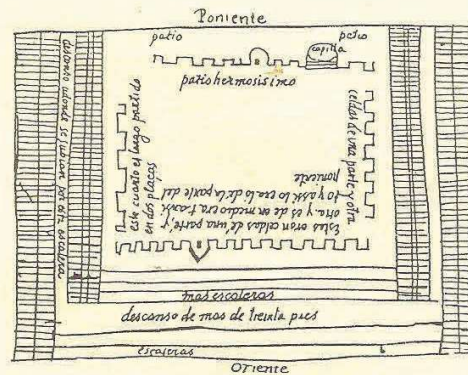 Poniente
patio
patio
capilla
patio hermosisimo
descanso adonde se subian por otra escalera
este cuarto es largo partido
en dos plaças
celdas de una parte y otra
Estas eran celdas de una parte y
otra y es de en medio era
lo era lo de la parte del
poniente
mas escaleras
descanso de mas de treinta pies
escaleras
Oriente